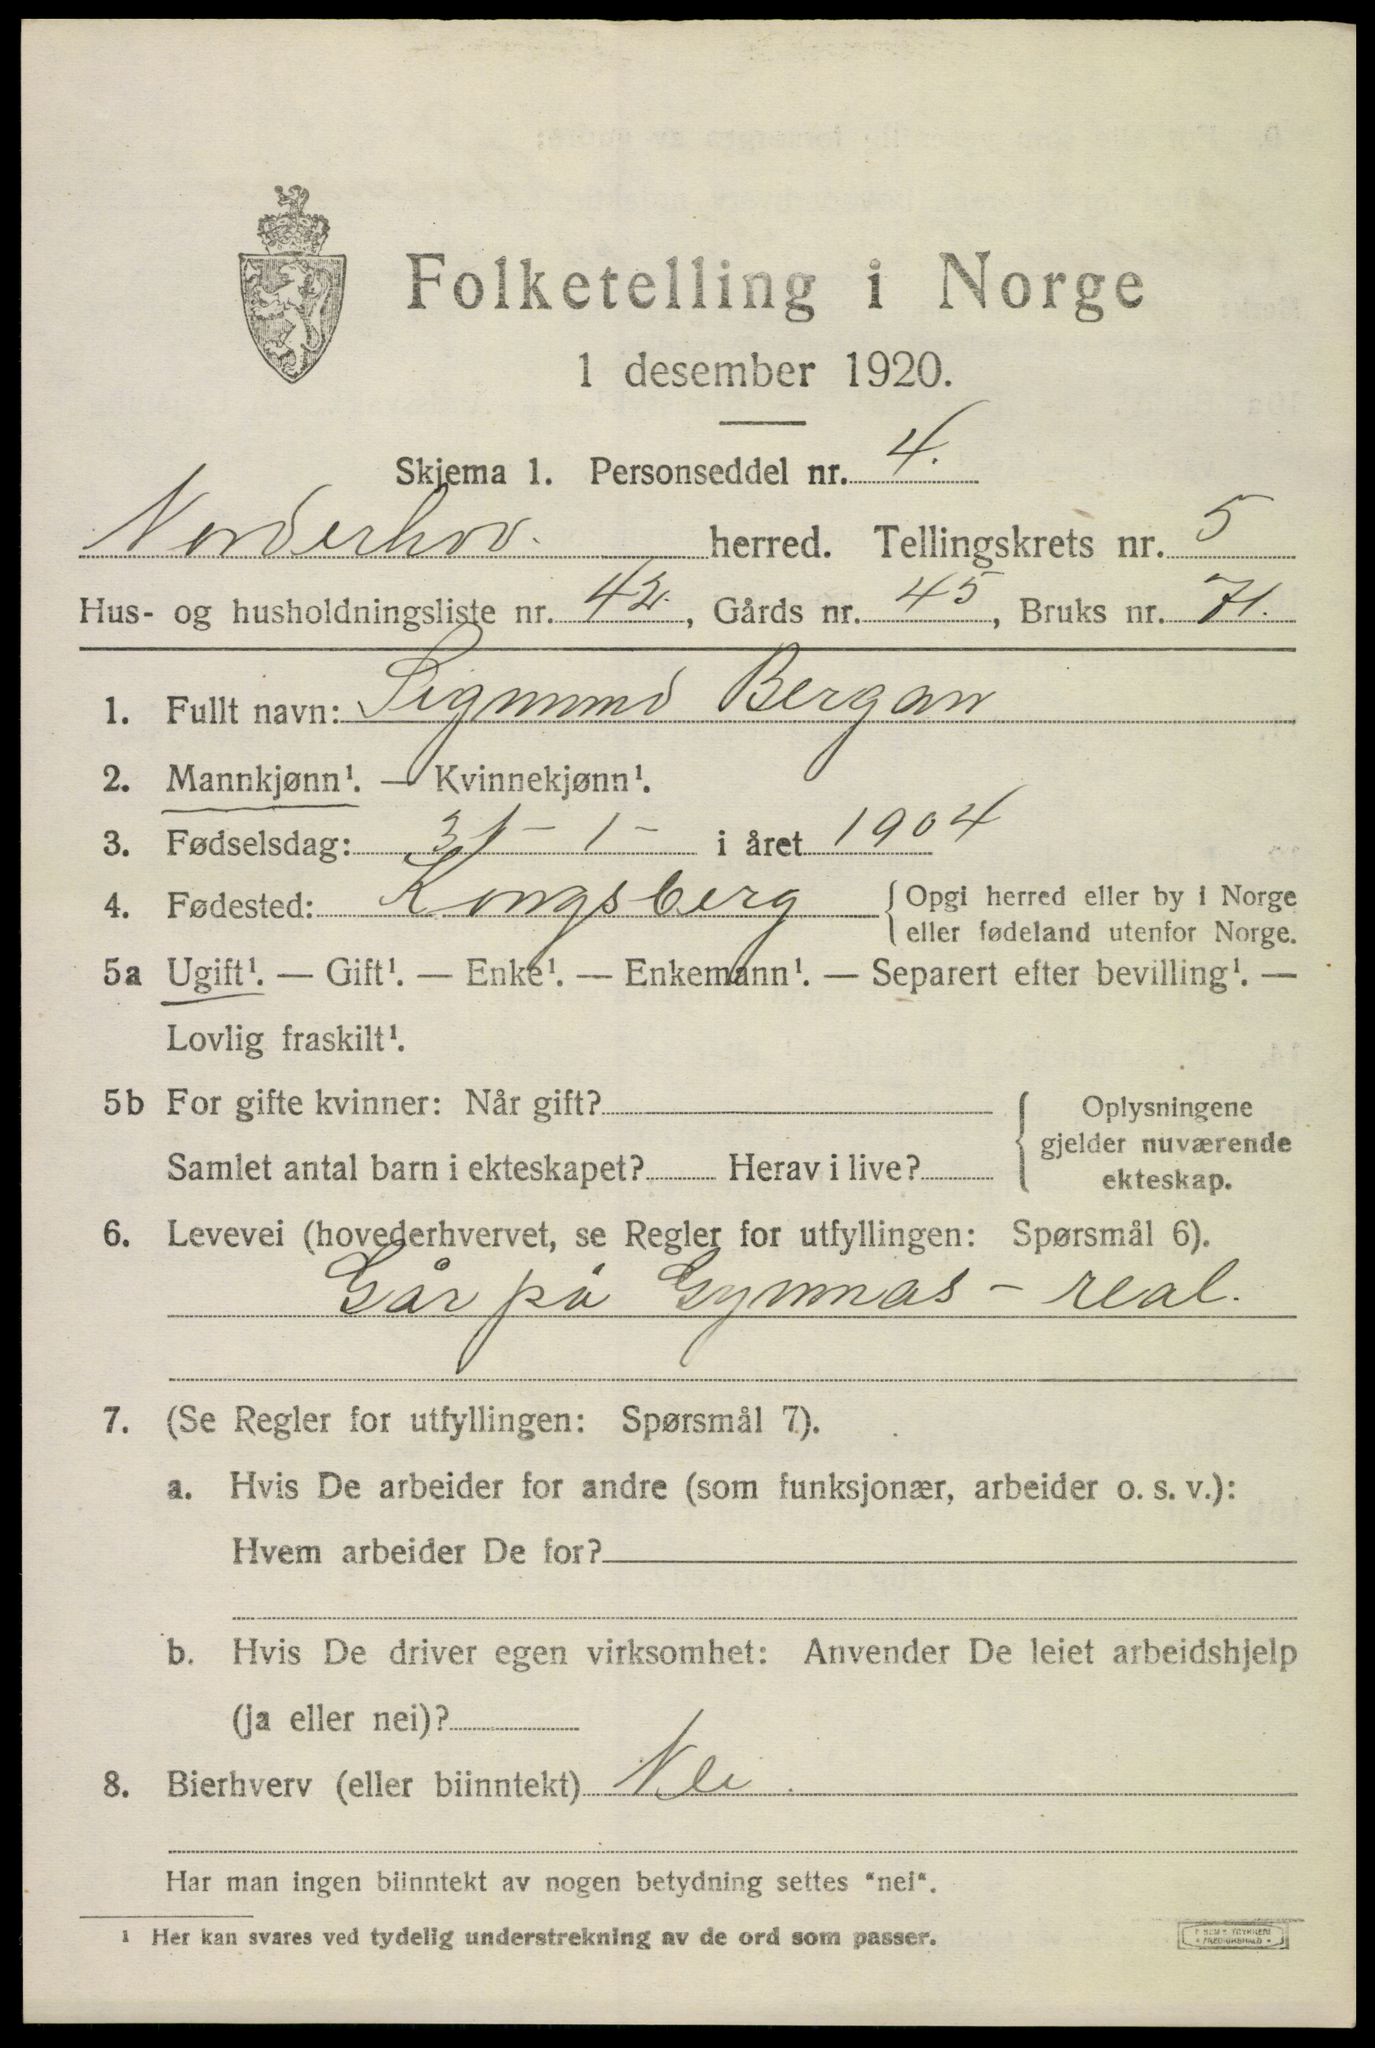 Folketelling i Norge
1 desember 1920.
Skjema 1. Personseddel nr. 4.
Norderhov. herred. Tellingskrets nr. 5
Hus- og husholdningsliste nr. 42., Gårds nr. 45, Bruks nr. 71.
1. Fullt navn: Sigmund Bergan
2. Mannkjønn¹. — Kvinnekjønn¹.
3. Fødselsdag: 31 - 1 - i året 1904
4. Fødested: Kongsberg { Opgi herred eller by i Norge
eller fødeland utenfor Norge.
5a Ugift¹. — Gift¹. — Enke¹. — Enkemann¹. — Separert efter bevilling¹. —
Lovlig fraskilt¹.
5b For gifte kvinner: Når gift?
Samlet antal barn i ekteskapet? Herav i live?
{ Oplysningene
gjelder nuværende
ekteskap.
6. Levevei (hovederhvervet, se Regler for utfyllingen: Spørsmål 6).
Går på Gymnas - real.
7. (Se Regler for utfyllingen: Spørsmål 7).
a. Hvis De arbeider for andre (som funksjonær, arbeider o. s. v.):
Hvem arbeider De for?
b. Hvis De driver egen virksomhet: Anvender De leiet arbeidshjelp
(ja eller nei)?
8. Bierhverv (eller biinntekt) Nei.
Har man ingen biinntekt av nogen betydning settes "nei".
¹ Her kan svares ved tydelig understrekning av de ord som passer.